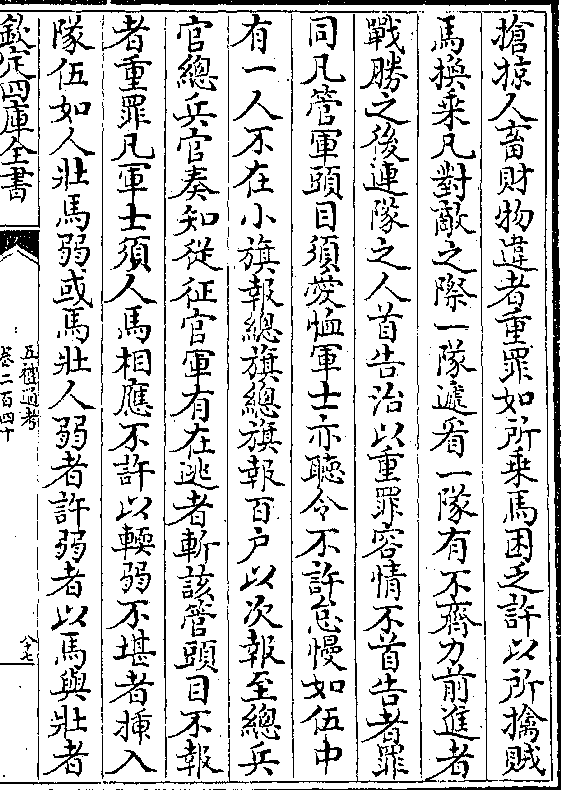 搶掠人畜財物違者重罪如所乘馬困乏許以所擒賊
馬換乘凡對敵之際一隊遞看一隊有不齊力前進者
戰勝之後連隊之人首告治以重罪容情不首告者罪
同凡管軍頭目須愛恤軍士亦聽令不許怠慢如伍中
有一人不在小旗報總旗總旗報百户以次報至總兵
官總兵官奏知從征官軍有在逃者斬該管頭目不報
者重罪凡軍士須人馬相應不許以輭弱不堪者揷入
隊伍如人壯馬弱或馬壯人弱者許弱者以馬與壯者
欽定四庫全書
五禮通考
卷二百四十